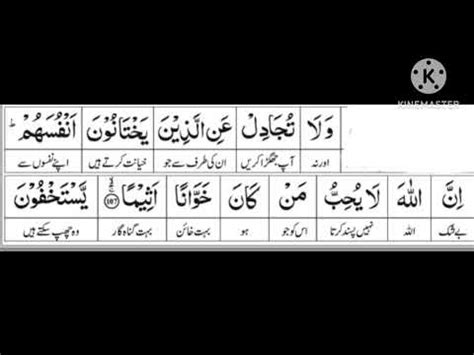 K
KINEMASTER
وَلَا تُجَادِلْ عَنِ الَّذِيْنَ يَخْتَانُوْنَ اَنْفُسَهُمْ ؕ
اور نہ آپ جھگڑا کریں ان کی طرف سے جو خیانت کرتے ہیں اپنے نفسوں سے
اِنَّ اللّٰهَ لَا يُحِبُّ مَنْ كَانَ خَوَّانًا اَثِيْمًا ۙ ۱۰۷ يَّسْتَخْفُوْنَ
بے شک اللہ نہیں پسند کرتا اس کو جو ہو بہت خائن بہت گناہ گار وہ چھپ سکتے ہیں